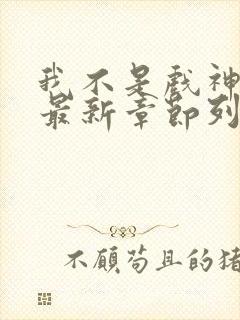 我不是戏神
最新章节列
不顾苟且的猪